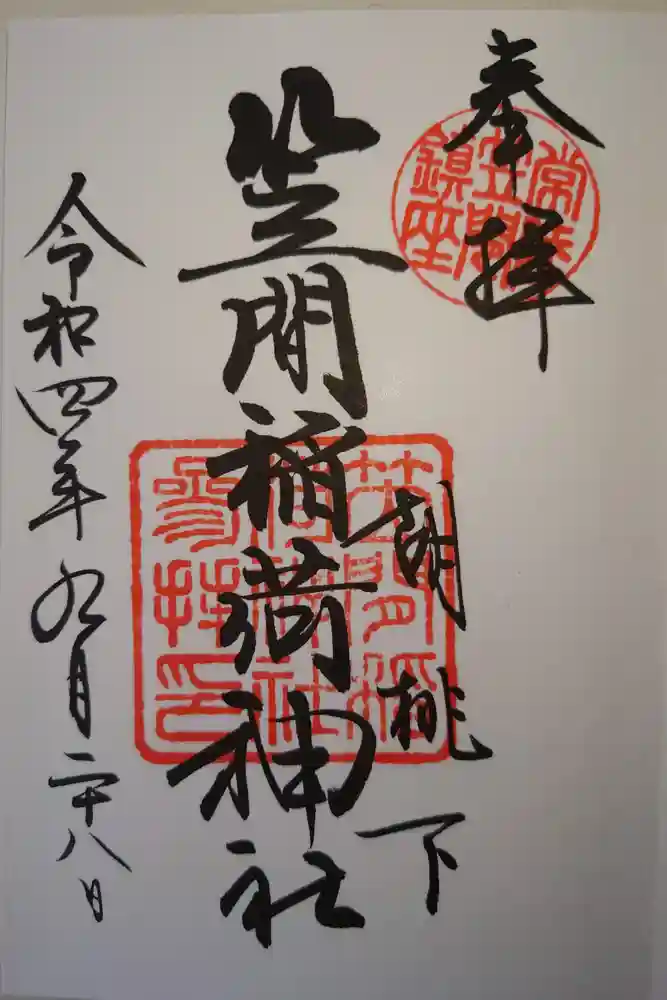 奉拝
胡桃下
笠間稲荷神社
令和四年九月二十八日
常陸笠間鎮座
笠間稲荷神社参拝印